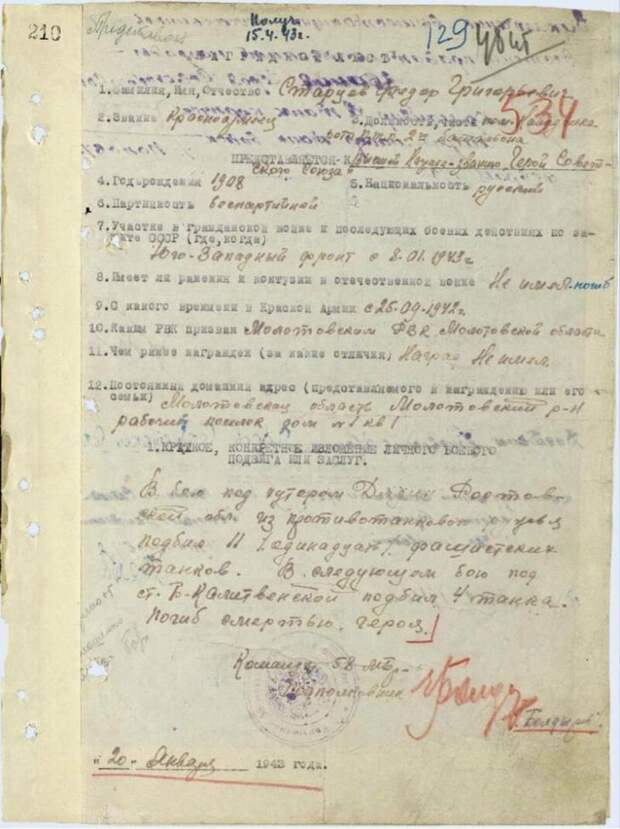 210
Получ
15.4.43г.
129 убит
1. Фамилия, Имя, Отчество Старцев Федор Григорьевич
534
2. Звание Красноармеец 3. Должность, часть
роты 2-го батальона
ПРЕДСТАВЛЯЕТСЯ К Герой Совет-
ского Союза
4. Год рождения 1908 5. Национальность русский
6. Партийность беспартийный
7. Участие в гражданской войне и последующих боевых действиях по за-
щите СССР (где, когда)
Юго-Западный фронт с 8.01.1943г.
8. Имеет ли ранения и контузии в отечественной войне Не имел. погиб
9. С какого времени в Красной Армии с 25.09-1942г.
10. Каким РВК призван Молотовским РВК Молотовской области
11. Чем ранее награжден (за какие отличия) Наград Не имел.
12. Постоянный домашний адрес (представляемого к награждению или его
семьи) Молотовская область Молотовский р-н
рабочий поселок дом №1 кв 1
1. КРАТКОЕ, КОНКРЕТНОЕ ИЗЛОЖЕНИЕ ЛИЧНОГО БОЕВОГО
ПОДВИГА ИЛИ ЗАСЛУГ.
В бою под хутором Ростов
ской обл. из противотанкового ружья
подбил 11 (одинадцать) фашистских
танков. В следующом бою под
ст. Б-Калитвенской подбил 4 танка.
Погиб смертью героя.
Командир 58 мбр-
Подполковник
"20" Января 1943 года.